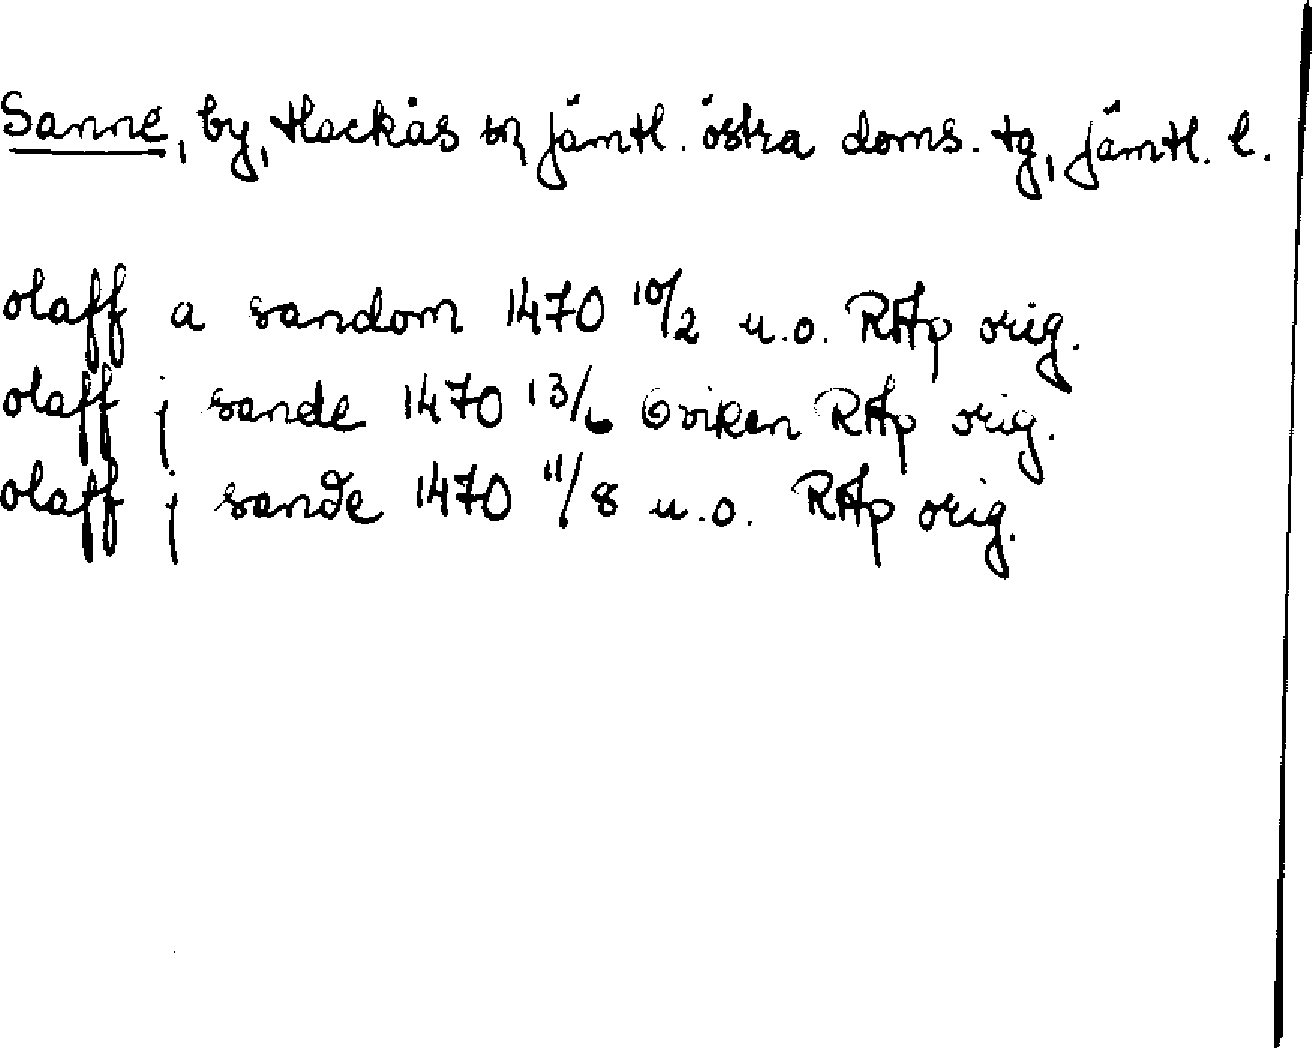 Sanne, by, Hackås sn Jämtl. östra doms. tg, Jämtl. l.
olaff a sandom 1470 10/2 u.o. RAp orig.
olaff j sande 1470 13/6 Oviken RAp orig.
olaff j sande 1470 11/8 u.o. RAp orig.